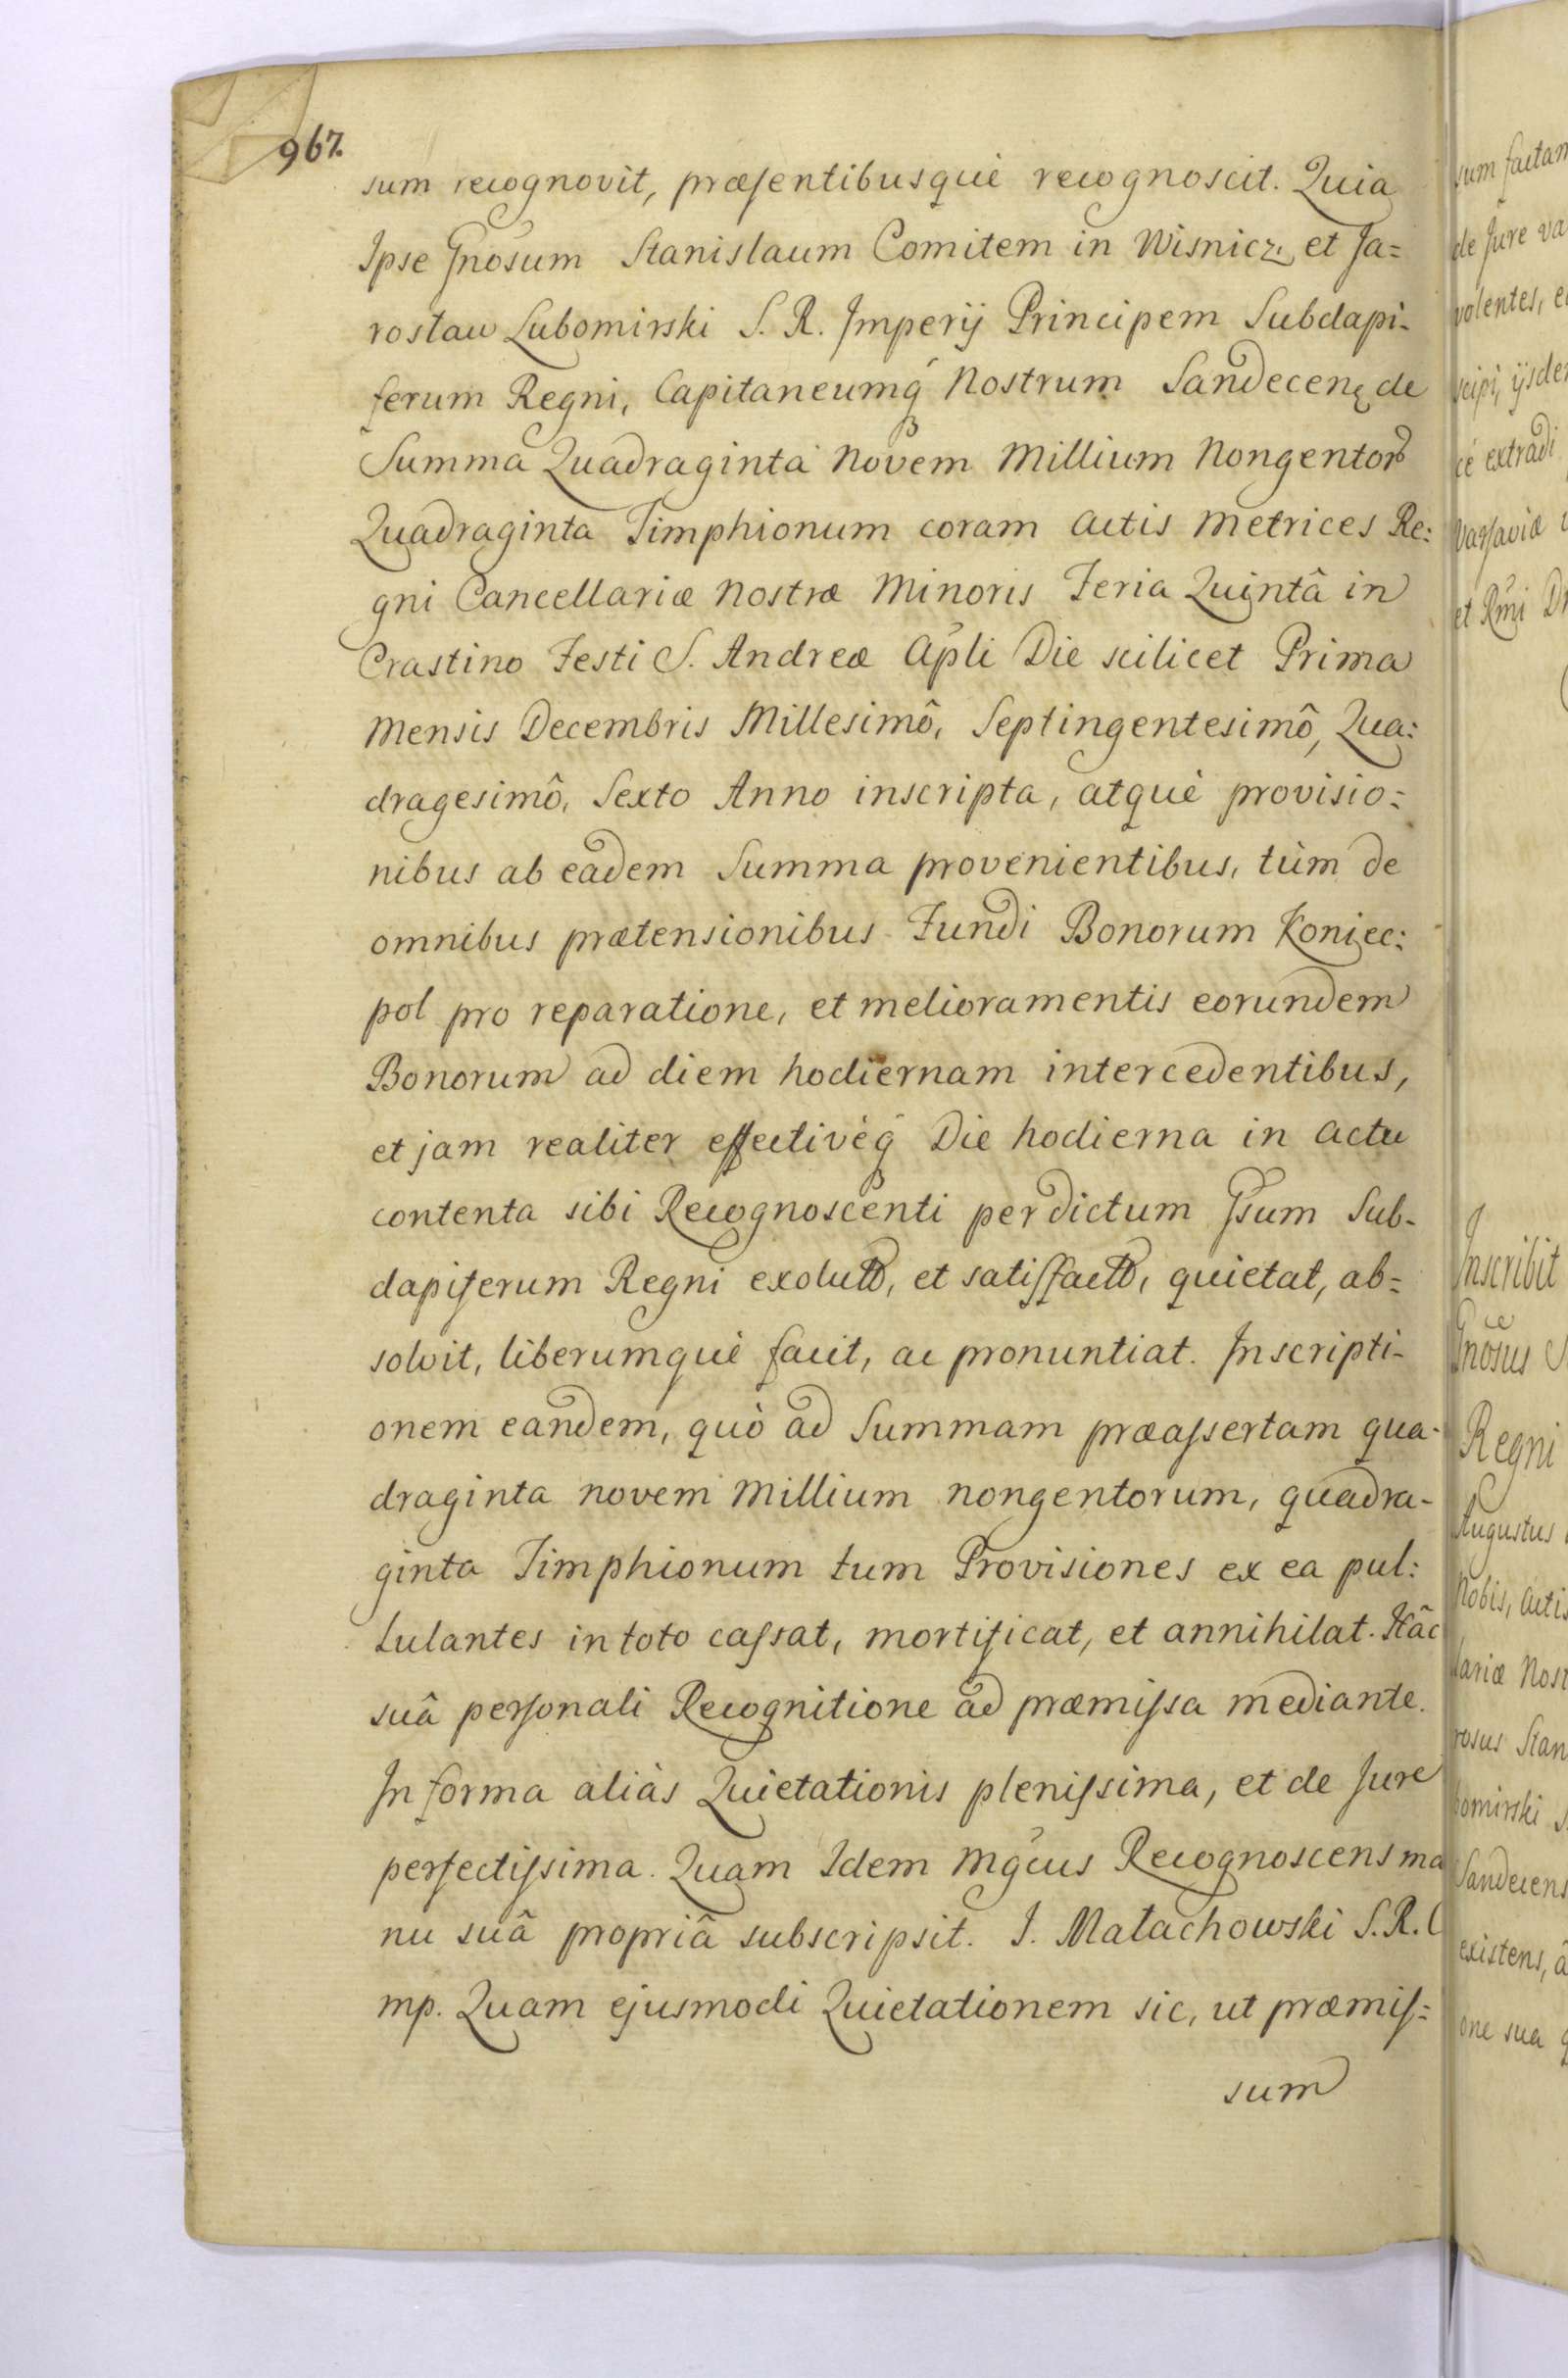 967.
sum recognovit, præsentibusquè recognoscit. Quia
Ipse Gnosum Stanislaum Comitem in Wisnicz, et Ja=
rosław Lubomirski S. R. Imperij Principem Subdapi-
ferum Regni, Capitaneumq́ Nostrum Sandecenȩ de
Summa Quadraginta Novem Millium Nongentor̄
Quadraginta Timphionum coram Actis Metrices Re:
gni Cancellariæ Nostræ Minoris Feria Quintâ in
Crastino Festi S. Andreæ Apli Die scilicet Prima
Mensis Decembris Millesimô, Septingentesimô, Qua:
dragesimô, Sexto Anno inscripta, atquè provisio=
nibus ab eadem Summa provenientibus, tùm de
omnibus prætensionibus Fundi Bonorum Koniec:
pol pro reparatione, et melioramentis eorundem
Bonorum ad diem hodiernam intercedentibus,
et jam realiter effectivèq́ Die hodierna in actu
contenta sibi Recognoscenti per dictum Gsum Sub-
dapiferum Regni exolutō, et satisfactō, quietat, ab=
solvit, liberumquè facit, ac pronuntiat. Inscripti-
onem eandem, quò ad Summam præassertam qua-
draginta novem Millium nongentorum, quadra-
ginta Timphionum tum Provisiones ex ea pul:
lulantes in toto cassat, mortificat, et annihilat. Hâc
suâ personali Recognitione ad præmissa mediante.
In forma aliàs Quietationis plenissima, et de Jure
perfectissima. Quam Idem Mgcus Recognoscens ma
nu suâ propriâ subscripsit. J. Małachowski S. R. C
mp. Quam ejusmodi Quietationem sic, ut præmis=
sum
sum factam
de Jure va
volentes,
scipi, ijsdem
cè extradi
Varsaviæ
et Rmi
Inscribit
Gnosus
Regni
Augustus
Nobis, Actis
lariæ Nost
rosus Stan
bomirski
Sandecens
existens, a
one sua